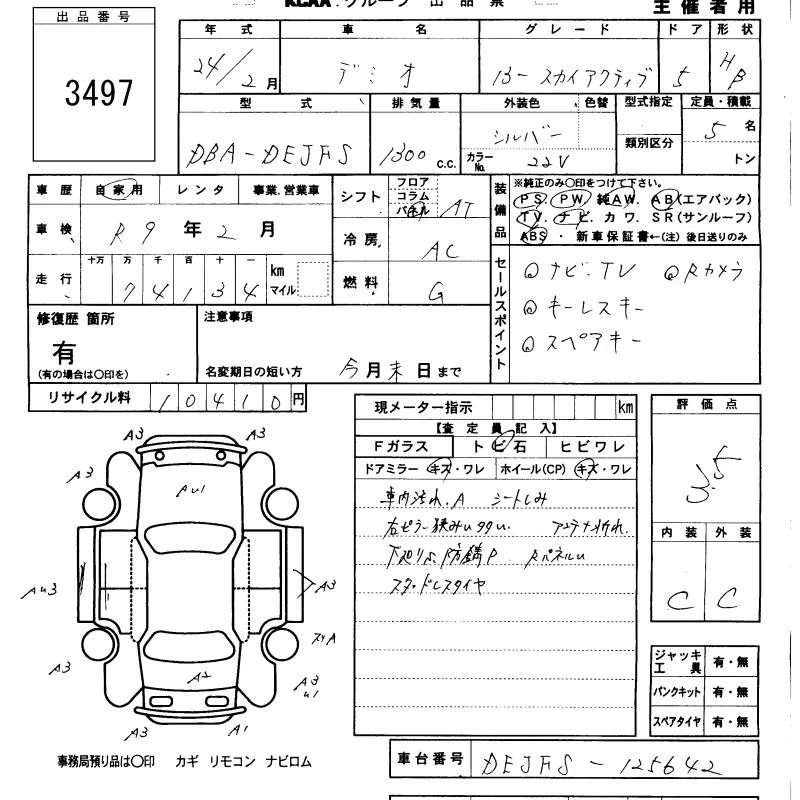 KCAA.グループ 出品票
主催者用
出品番号
3497
年式 車名 グレード ドア 形状
24/2月 デミオ 13-スカイアクティブ 5 HB
型式 排気量 外装色 色替 型式指定 定員・積載
DBA-DEJFS 1300 c.c. シルバー 類別区分 5名
カラーNo. 22V トン
車歴 自家用 レンタ 事業.営業車
車検 R9年2月
走行 十万 万 千 百 十 一 km
7 4 1 3 4 マイル
シフト フロア コラム パネル AT
冷房 AC
燃料 G
装備品 ※純正のみ○印をつけて下さい。
PS. PW. 純AW. AB(エアバック)
TV. ナビ. カワ. SR(サンルーフ)
ABS ・ 新車保証書←(注) 後日送りのみ
セールスポイント
◎ナビ.TV ◎Rカメラ
◎キーレスキー
◎スペアキー
修復歴 箇所
有
(有の場合は○印を)
注意事項
名変期日の短い方 今月末日まで
リサイクル料 10410円
現メーター指示 km
【査定員記入】
Fガラス トビ石 ヒビワレ
ドアミラー キズ・ワレ ホイール(CP) キズ・ワレ
車内汚れ.A シートしみ
アンテナ折れ.
下廻りS 防錆P RパネルU
スタッドレスタイヤ
評価点
3.5
内装 外装
C C
A3 A3
A3
AU1
A3
AU3
A3
A3
A3
U1
A3 A1
ジャッキ工具 有・無
パンクキット 有・無
スペアタイヤ 有・無
事務局預り品は○印 カギ リモコン ナビロム
車台番号 DEJFS-125642